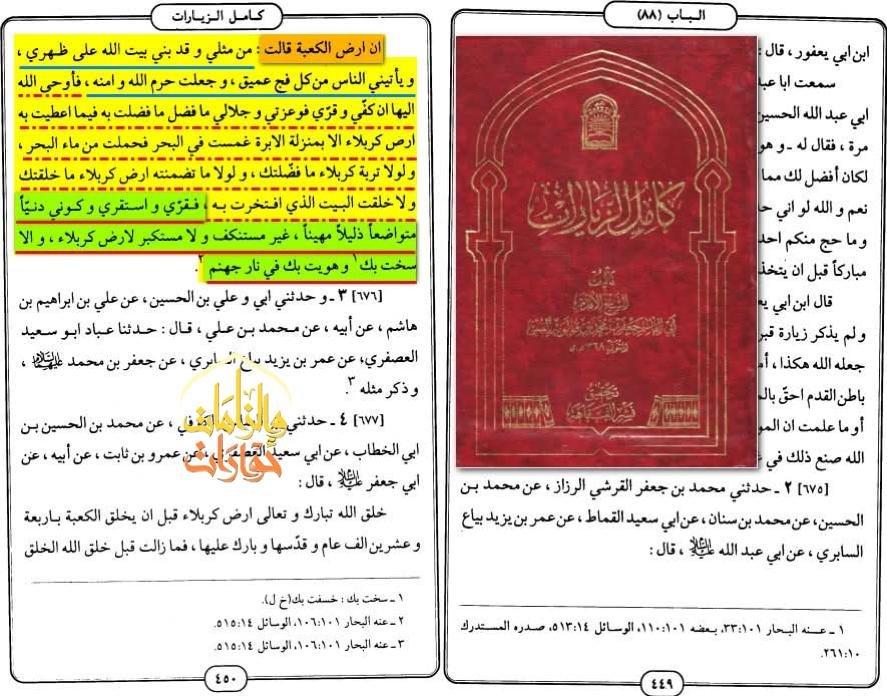 الباب (٨٨)
ابن ابي يعفور ، قال :
سمعت ابا عبد
ابي عبد الله الحسين
مرة ، فقال له ـ و هو
لكان أفضل لك مما
نعم و الله لو اني حد
و ما حج منكم احد
مباركاً قبل ان يتخذ
قال ابن ابي يع
و لم يذكر زيارة قبر
جعله الله هكذا ، أما
باطن القدم احقّ بالم
أو ما علمت ان المو
الله صنع ذلك في غ
كامل الزيارات
تأليف
الشيخ الأقدم
تحقيق
نشر الفقاهة
[٦٧٥] ٢ ـ حدثني محمد بن جعفر القرشي الرزاز ، عن محمد بن
الحسين ، عن محمد بن سنان ، عن ابي سعيد القماط ، عن عمر بن يزيد بياع
السابري ، عن ابي عبد الله عليه السلام ، قال :
١ ـ عـنه البحار ١٠١:٣٣، بـعضه ١٠١:١١٠، الوسائل ١٤:٥١٣، صدره المستدرك
١٠:٢٦١.
٤٤٩
كامل الزيارات
ان ارض الكعبة قالت : من مثلي و قد بني بيت الله على ظهري ،
و يأتيني الناس من كل فج عميق ، و جعلت حرم الله و امنه ، فأوحى الله
اليها ان كفّي و قرّي فوعزتي و جلالي ما فضل ما فضلت به فيما اعطيت به
ارض كربلاء الا بمنزلة الابرة غمست في البحر فحملت من ماء البحر ،
و لولا تربة كربلاء ما فضّلتك ، و لولا ما تضمنته ارض كربلاء ما خلقتك
و لا خلقت البيت الذي افتخرت بـه ، فـقرّي و استقري و كـوني دنـيّاً
متواضعاً ذليلاً مهيناً ، غير مستنكف و لا مستكبر لارض كربلاء ، و الا
سخت بك١ و هويت بك في نار جهنم٢.
[٦٧٦] ٣ ـ و حدثني ابي و علي بن الحسين ، عن علي بن ابراهيم بن
هاشم ، عن أبيه ، عن محمد بن علي ، قال : حدثنا عباد ابو سعيد
العصفري، عن عمر بن يزيد بياع السابري ، عن جعفر بن محمد عليهما السلام ،
و ذكر مثله ٣.
[٦٧٧] ٤ ـ حدثني في ، عن محمد بن الحسين بـن
ابي الخطاب ، عن ابي سعيد العصفري ، عن عمرو بن ثابت ، عن أبيه ، عن
ابي جعفر عليه السلام ، قال :
خلق الله تبارك و تعالى ارض كربلاء قبل ان يخلق الكعبة بـاربعة
و عشرين الف عام و قدّسها و بارك عليها ، فما زالت قبل خلق الله الخلق
١ ـ سخت بك : خسفت بك(خ ل).
٢ ـ عنه البحار ١٠١:١٠٦، الوسائل ١٤:٥١٥.
٣ ـ عنه البحار ١٠١:١٠٦، الوسائل ١٤:٥١٥.
٤٥٠